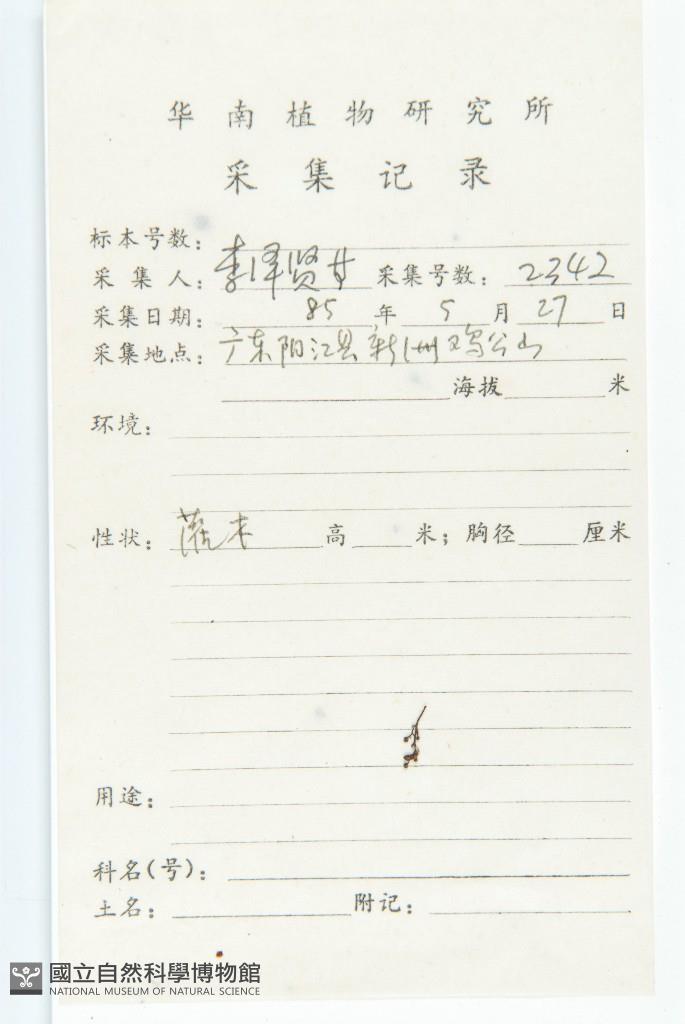 华南植物研究所
采集记录
标本号数：
采集人：李泽贤 采集号数：2342
采集日期：85年5月27日
采集地点：广东阳江县新洲鸡公山
海拔 米
环境：
性状：灌木 高 米；胸径 厘米
用途：
科名(号)：
土名： 附记：
國立自然科學博物館
NATIONAL MUSEUM OF NATURAL SCIENCE